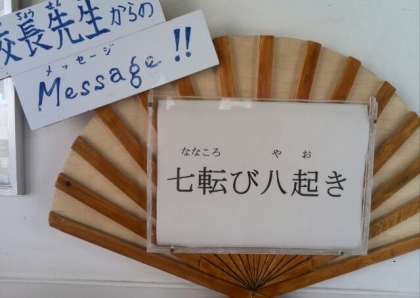 校長先生からの
こうちょうせんせい
メッセージ
Message!!
ななころ や お
七転び八起き